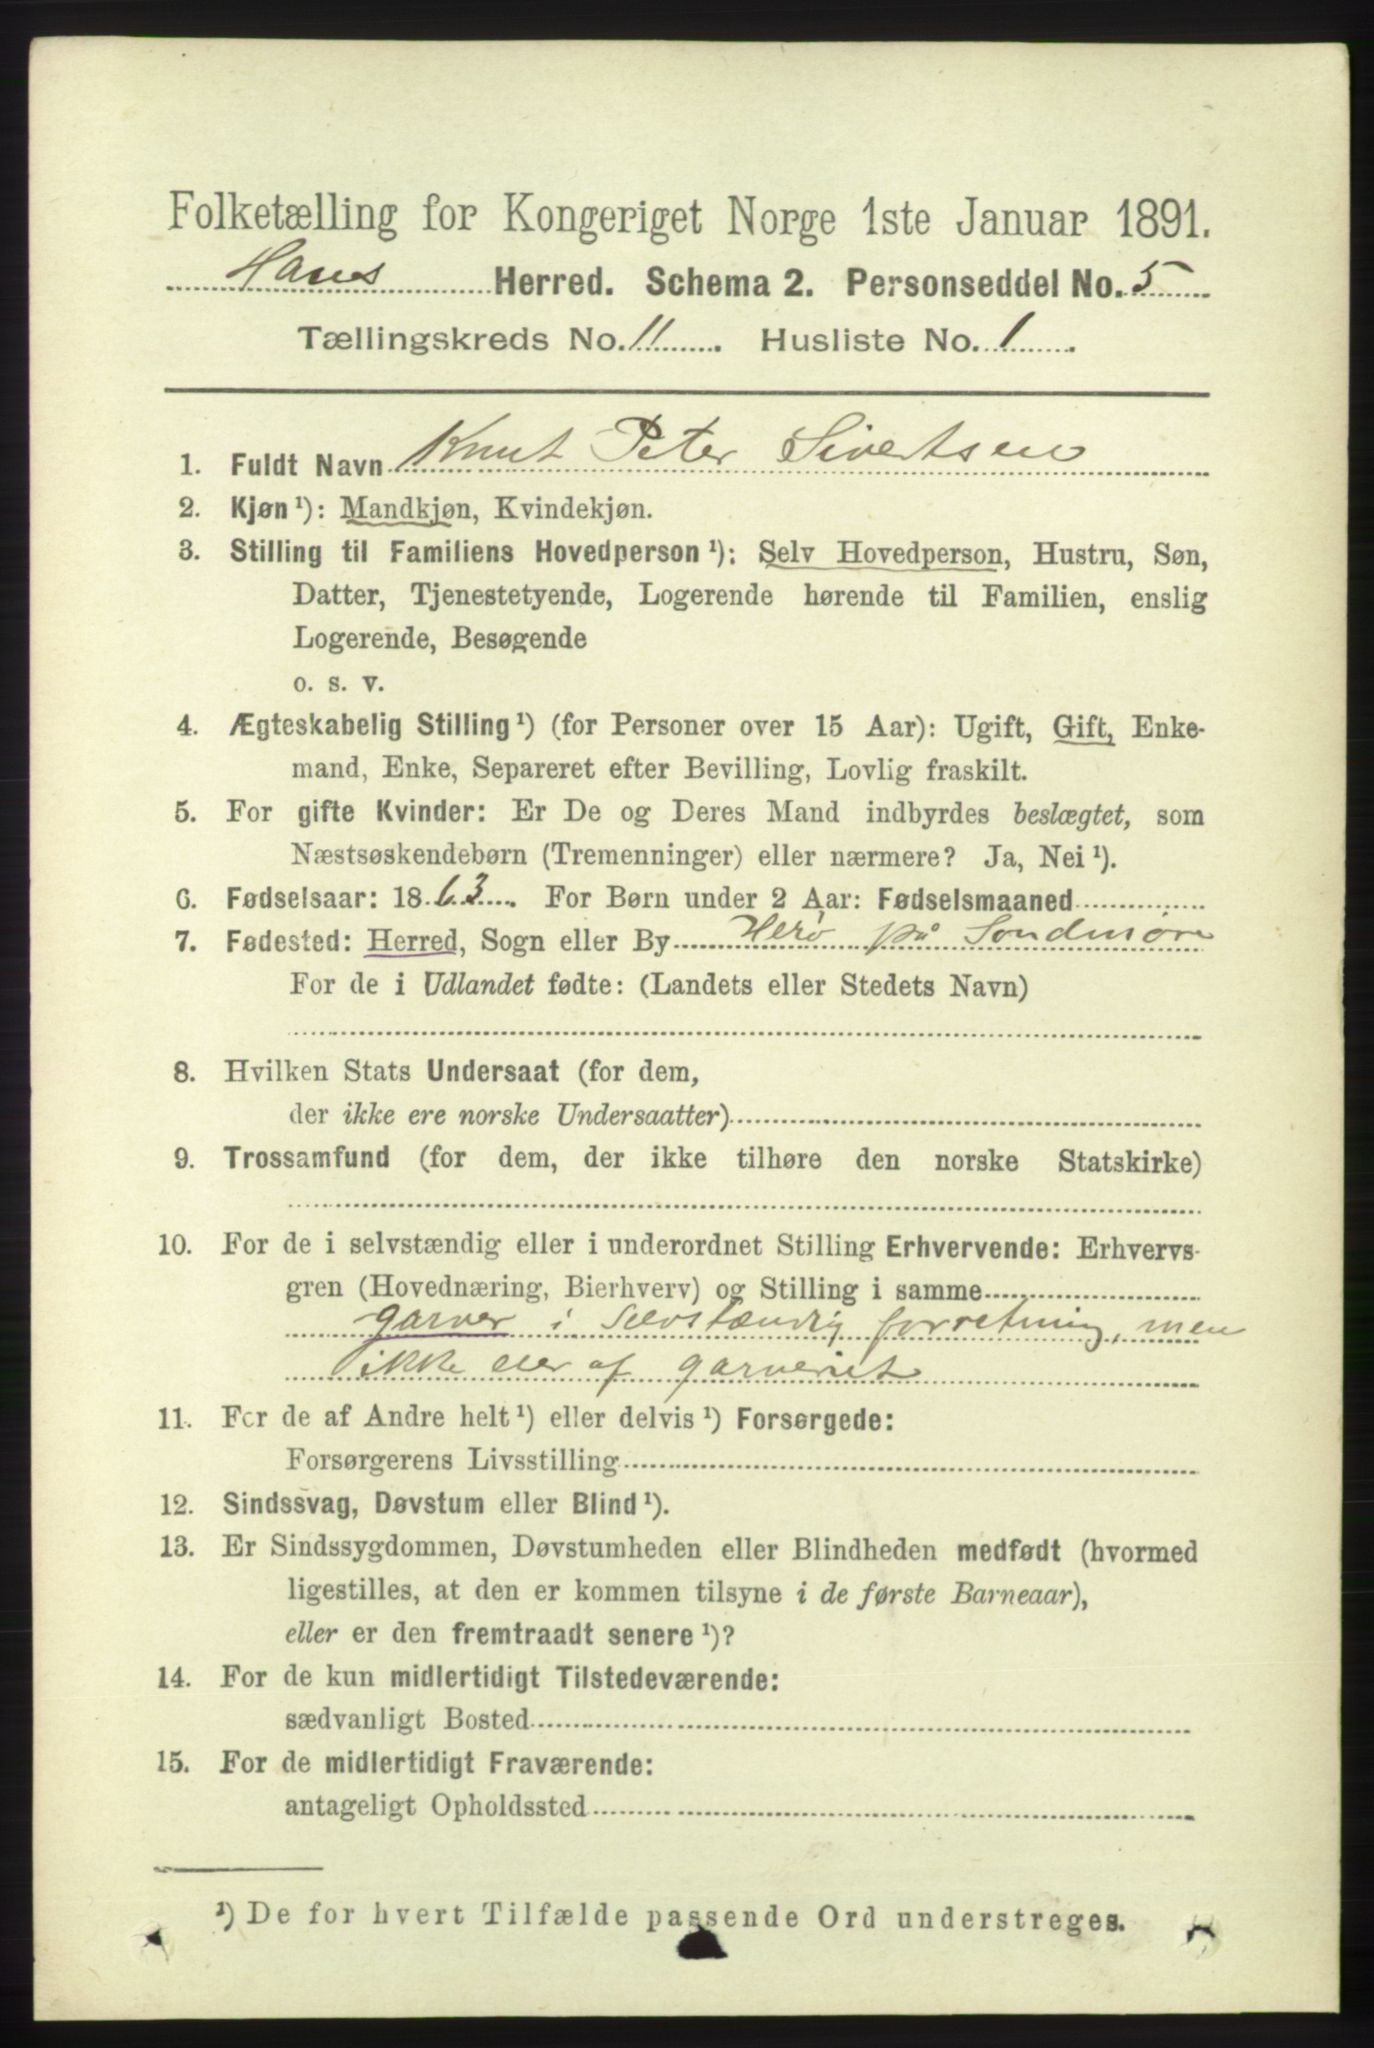 Folketælling for Kongeriget Norge 1ste Januar 1891.
Haus Herred. Schema 2. Personseddel No. 5
Tællingskreds No. 11. Husliste No. 1.
1. Fuldt Navn Knut Peter Sivertsen
2. Kjøn¹): Mandkjøn, Kvindekjøn.
3. Stilling til Familiens Hovedperson¹): Selv Hovedperson, Hustru, Søn,
Datter, Tjenestetyende, Logerende hørende til Familien, enslig
Logerende, Besøgende
o. s. v.
4. Ægteskabelig Stilling¹) (for Personer over 15 Aar): Ugift, Gift, Enke-
mand, Enke, Separeret efter Bevilling, Lovlig fraskilt.
5. For gifte Kvinder: Er De og Deres Mand indbyrdes beslægtet, som
Næstsøskendebørn (Tremenninger) eller nærmere? Ja, Nei¹).
6. Fødselsaar: 1863. For Børn under 2 Aar: Fødselsmaaned
7. Fødested: Herred, Sogn eller By Herø på Søndmøre
For de i Udlandet fødte: (Landets eller Stedets Navn)
8. Hvilken Stats Undersaat (for dem,
der ikke ere norske Undersaatter)
9. Trossamfund (for dem, der ikke tilhøre den norske Statskirke)
10. For de i selvstændig eller i underordnet Stilling Erhvervende: Erhvervs-
gren (Hovednæring, Bierhverv) og Stilling i samme
garver i selvstændig forretning, men
ikke eier af garveriet
11. For de af Andre helt¹) eller delvis¹) Forsørgede:
Forsørgerens Livsstilling
12. Sindssvag, Døvstum eller Blind¹).
13. Er Sindssygdommen, Døvstumheden eller Blindheden medfødt (hvormed
ligestilles, at den er kommen tilsyne i de første Barneaar),
eller er den fremtraadt senere¹)?
14. For de kun midlertidigt Tilstedeværende:
sædvanligt Bosted
15. For de midlertidigt Fraværende:
antageligt Opholdssted
¹) De for hvert Tilfælde passende Ord understreges.